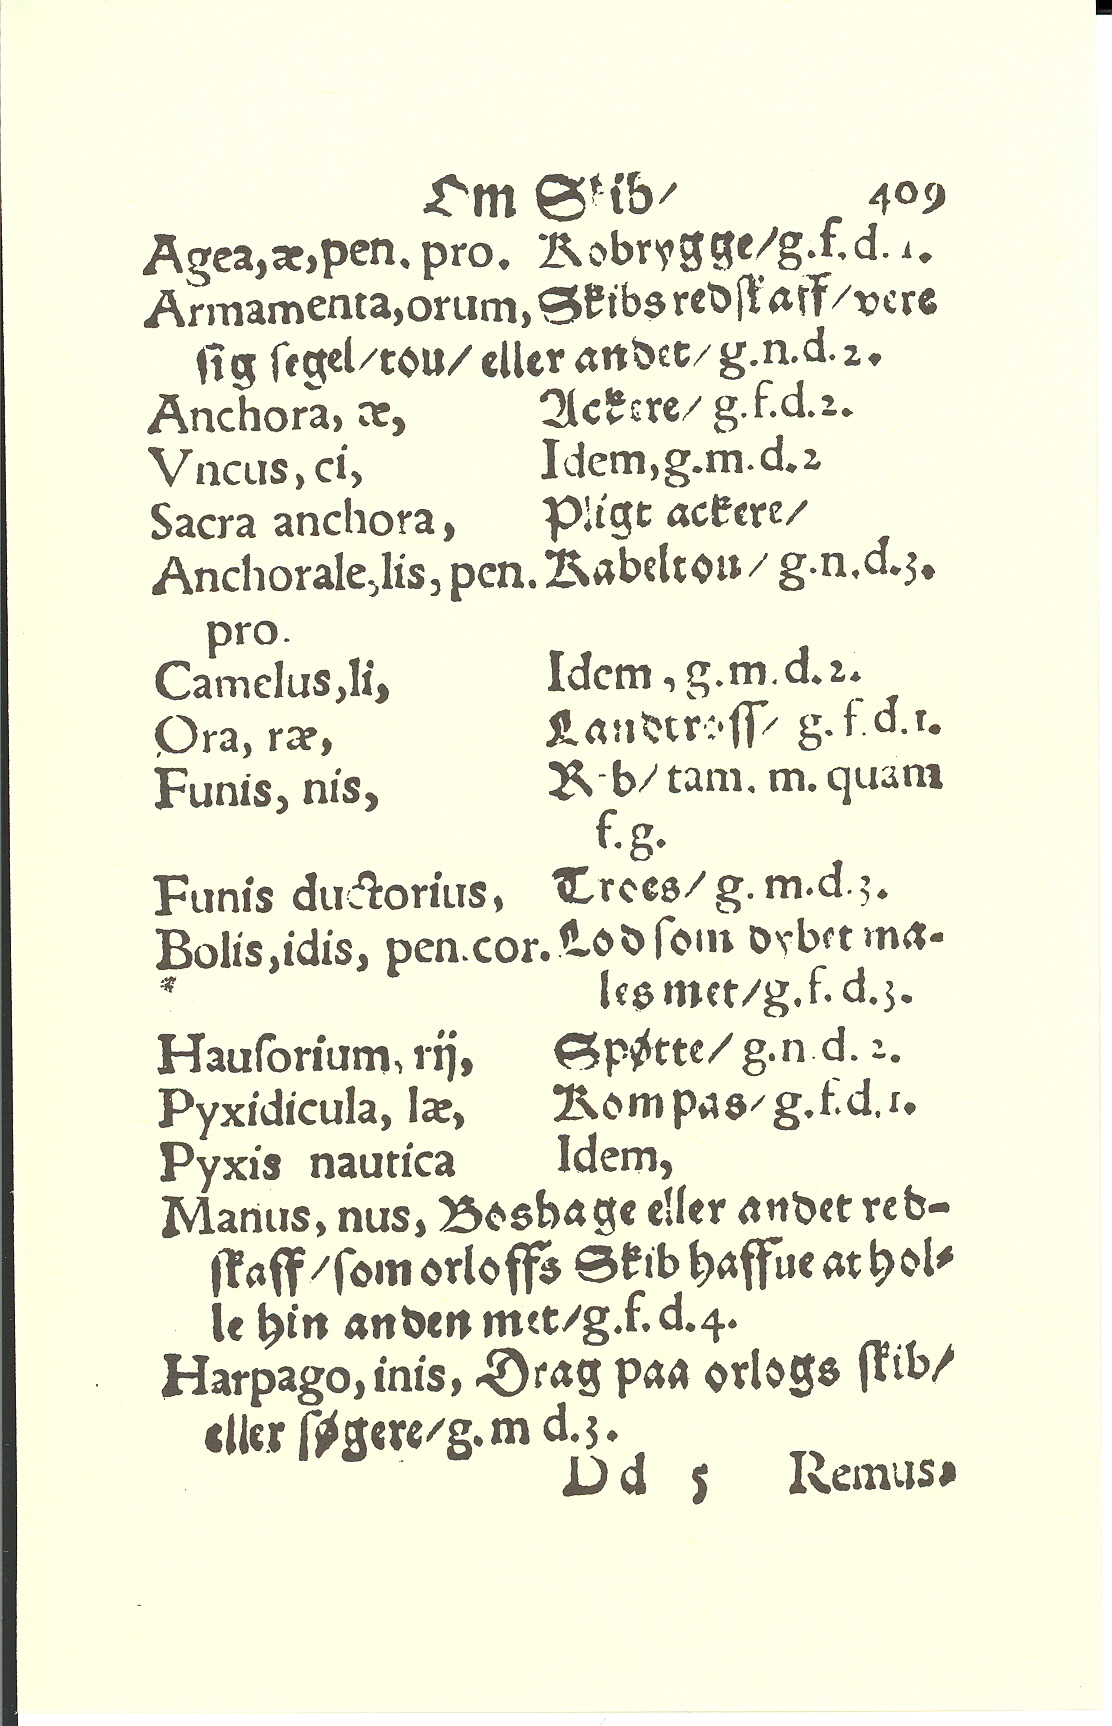 Om Skib/ 409
Agea,æ,pen. pro. Robrygge/g.f.d.1.
Armamenta,orum, Skibs redſkaff/vere
ſig ſegel/tou/ eller andet/ g.n.d.2.
Anchora, æ, Ackere/ g.f.d.2.
Vncus, ci, Idem,g.m.d.2
Sacra anchora, Pligt ackere/
Anchorale,lis, pen. Kabeltou/ g.n.d.3.
pro.
Camelus,li, Idem, g.m.d.2.
Ora, ræ, Landtroſſ/ g.f.d.1.
Funis, nis, tam. m. quam
f.g.
Funis ductorius, Troes/ g.m.d.3.
Bolis,idis, pen.cor. Lod ſom dybet ma-
les met/g.f.d.3.
Hauſorium, rij, Spøtte/ g.n.d.2.
Pyxidicula, læ, Kompas/ g.f.d.1.
Pyxis nautica Idem,
Manus, nus, Boshage eller andet red-
ſkaff/ſom orloffs Skib haffue at hol-
le hin anden met/g.f.d.4.
Harpago, inis, Drag paa orlogs ſkib/
eller ſøgere/g.m d.3.
Dd 5 Remus,